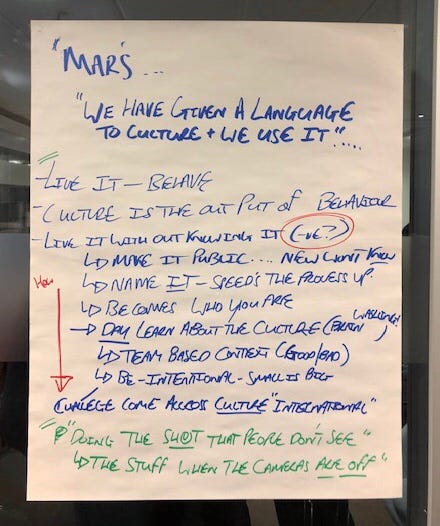 "MAR'S ...
"WE HAVE GIVEN A LANGUAGE
TO CULTURE + WE USE IT"....
- LIVE IT - BEHAVE
- CULTURE IS THE OUT PUT OF BEHAVIOUR
- LIVE IT WITH OUT KNOWING IT (-VE?)
↳ MAKE IT PUBLIC .... NEW WON'T KNOW
How ↳ NAME IT - SPEED'S THE PROCESS UP.
↳ BECOMES WHO YOU ARE
→ DAY LEARN ABOUT THE CULTURE (BRAIN WASHING!)
↳ TEAM BASED CONTEXT (GOOD/BAD)
↳ BE - INTENTIONAL - SMALL IS BIG
COME ACCESS CULTURE "INTERNATIONAL"
"DOING THE SH@T THAT PEOPLE DON'T SEE"
↳ THE STUFF WHEN THE CAMERAS ARE OFF"